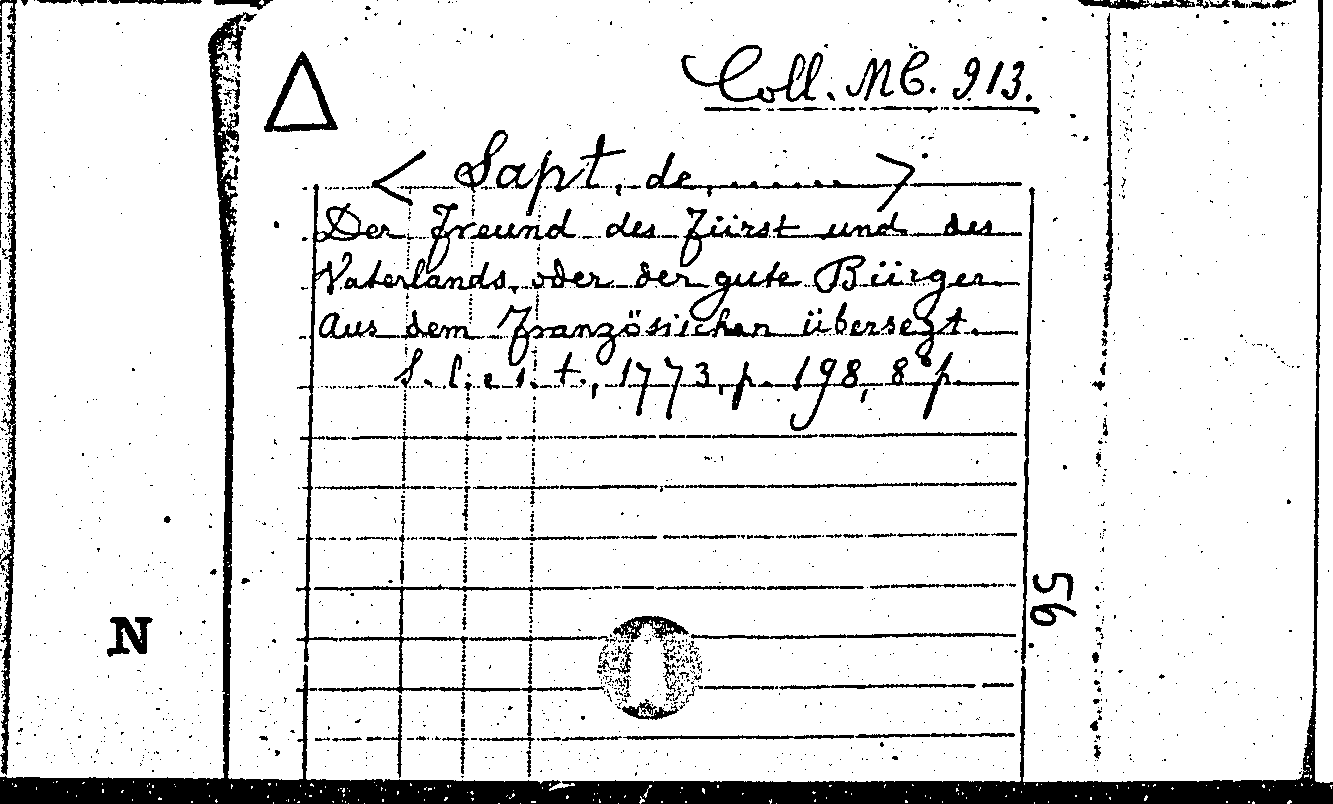 Coll. MC. 913.
< Sapt, de, ....... >
Der Freund des Fürst und des
Vaterlands, oder der gute Bürger
aus dem Französischen übersezt.
S. l. e s. t., 1773, p. 198, 8° p.
56
N